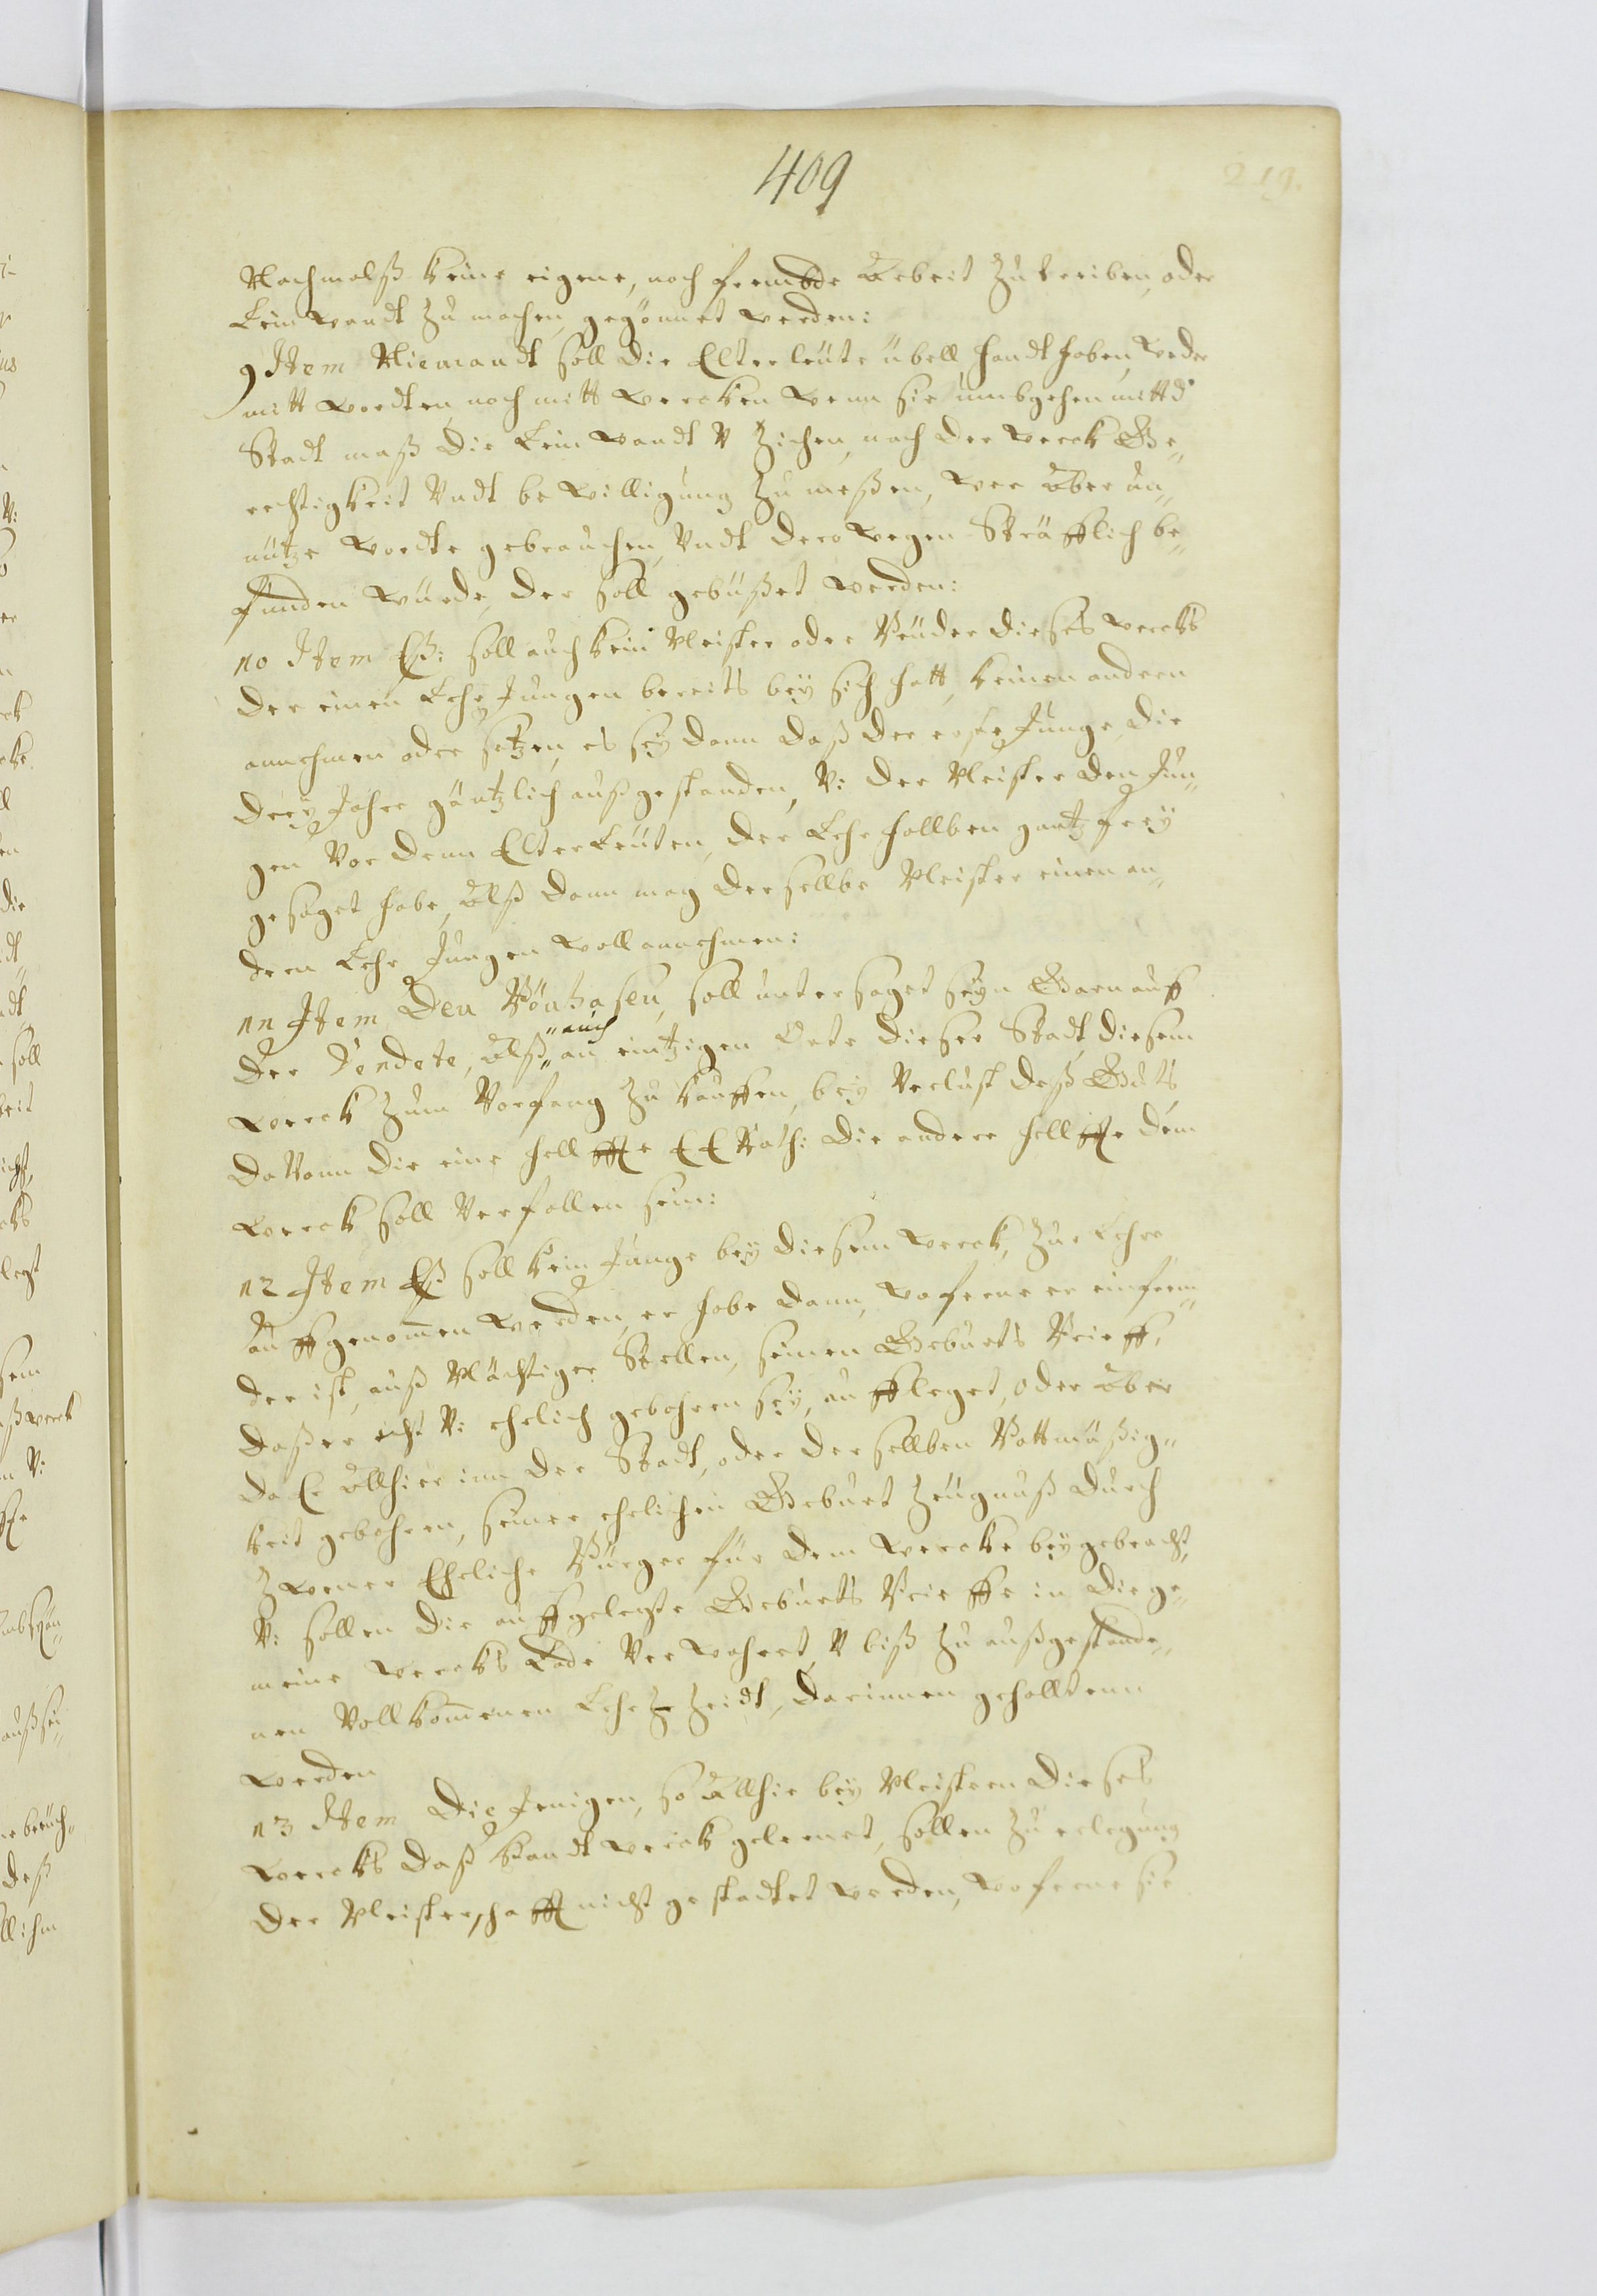 409
219.
Nachmalß keine eigene, noch frembde Arbeit zutreiben, oder
Leinwandt zu machen, gegönnet werden:
9 Item Niemandt soll die Elterleüte übell handthaben, weder
mitt wordten noch mitt wercken wenn sie umbgehen mitt d'
Stadt maß die Leinwandt V Ziehen, nach der werck Ge¬
rechtigkeit Vndt bewilligung zu meßen, wer aber un¬
nütze wordte gebrauchen, Vndt derowegen Sträfflich be¬
funden würde, der soll gebüßet werden:
10 Item Eß: soll auch kein Meister oder Brüder dieses wercks
der einen Lehr Jungen bereits bey sich hatt, keinen andern
annehmen oder setzen, es sey dann daß der erste Junge die
drey Jahre gäntzlich außgestanden, V: der Meister den Jun¬
gen Vor denn Elterleüten, der Lehr hallben gantz frey
gesaget habe, Alß dann mag dersellbe Meister einen an¬
dern Lehr Jungen woll annehmen:
11 Item Den Bönhasen, soll untersaget seyn Garn auff
der Tendete, Alß auch an eintzigen Orte dieser Stadt, diesem
werck zum Vorfang zu kauffen, bey Verlust deß Guts,
daVonn die eine hellffte E E Rath: die andere hellffte dem
werck soll Verfallen sein:
12 Item Eß soll kein Junge bey diesem werck, zur Lehre
auffgenommen werden, er habe dann, woferne er ein frem¬
der ist, auß Mächtiger Stellen, seinen Geburts Brieff,
daß er echt V: ehelich gebohren sey, auffleget, oder aber
da Er Allhier inn der Stadt, oder dersellben Bottmäßig¬
keit gebohren, seiner ehelichen Geburt Zeügnuß durch
Zweener Eheliche Bürger für dem wercke beygebracht,
V: sollen die auffgelegte Geburts Brieffe in die ge¬
meine wercks Lade Verwahret, V biß zu außgestande¬
nen Vollkommenen Lehr Zeidt, darinnen gehalltenn
werden
13 Item Die Jenigen, so Allhie bey Meistern dieses
wercks daß Handtwerck gelernet, sollen zu erlegung
der Meisterschafft nicht gestadtet werden, woferne sie